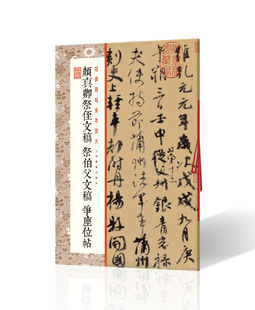 顏真卿祭侄文稿 祭伯父文稿 爭座位帖
維乾元元年歲次戊戌九月庚
午朔三日壬申第十三叔銀青光祿
夫使持節蒲州諸軍事蒲州
刺史上輕車都尉丹楊縣開國